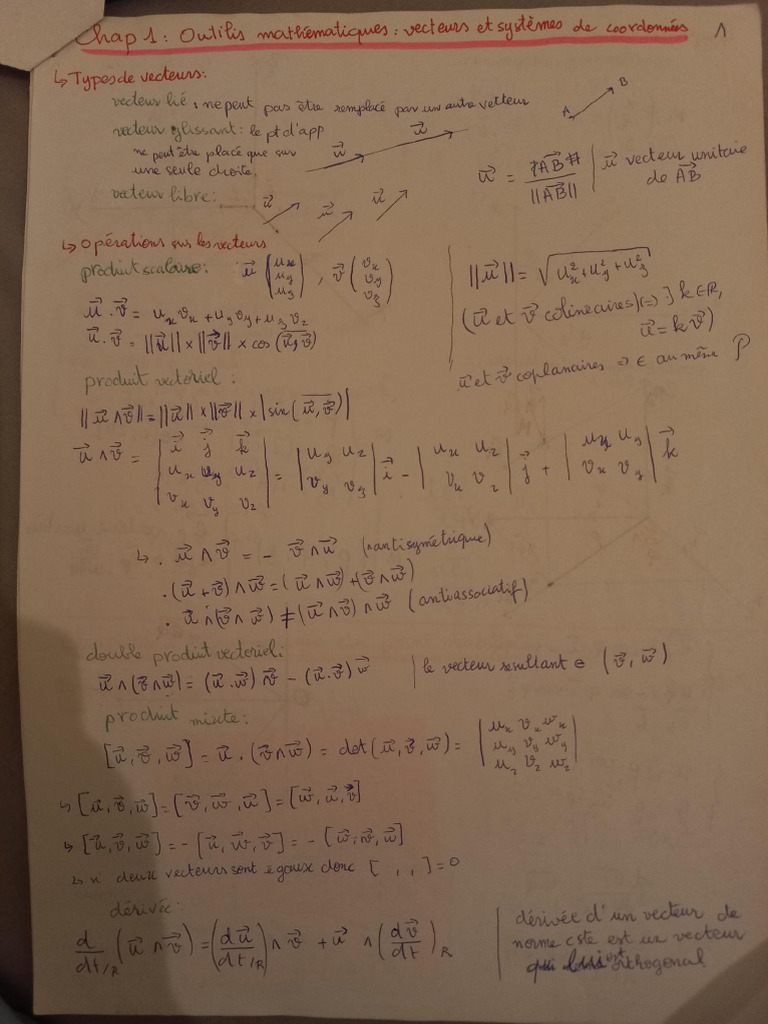 Chap 1 : Outils mathématiques : vecteurs et systèmes de coordonnées 1
↳ Types de vecteurs :
vecteur lié : ne peut pas être remplacé par un autre vecteur
A B
vecteur glissant : le pt d'app
ne peut être placé que sur
une seule droite.
u⃗ u⃗
u⃗ = AB⃗ / ||AB⃗|| | u⃗ vecteur unitaire
de AB⃗
vecteur libre : u⃗ u⃗ u⃗
↳ Opérations sur les vecteurs
produit scalaire : u⃗ (u_x u_y u_z) , v⃗ (v_x v_y v_z)
||u⃗|| = √(u_x² + u_y² + u_z²)
u⃗ . v⃗ = u_x v_x + u_y v_y + u_z v_z
(u⃗ et v⃗ colineaires) (=) ∃ k ∈ ℝ,
u⃗ = k v⃗)
u⃗ . v⃗ = ||u⃗|| × ||v⃗|| × cos (u⃗, v⃗)
u⃗ et v⃗ coplanaires => ∈ au même P
produit vectoriel :
||u⃗ ∧ v⃗|| = ||u⃗|| × ||v⃗|| × |sin (u⃗, v⃗)|
u⃗ ∧ v⃗ = | i⃗ j⃗ k⃗ ; u_x u_y u_z ; v_x v_y v_z | = | u_y u_z ; v_y v_z | i⃗ - | u_x u_z ; v_x v_z | j⃗ + | u_x u_y ; v_x v_y | k⃗
↳ . u⃗ ∧ v⃗ = - v⃗ ∧ u⃗ (antisymétrique)
. (u⃗ + v⃗) ∧ w⃗ = (u⃗ ∧ w⃗) + (v⃗ ∧ w⃗)
. u⃗ ∧ (v⃗ ∧ w⃗) ≠ (u⃗ ∧ v⃗) ∧ w⃗ (antiassociatif)
double produit vectoriel :
u⃗ ∧ (v⃗ ∧ w⃗) = (u⃗ . w⃗) v⃗ - (u⃗ . v⃗) w⃗ | le vecteur resultant ∈ (v⃗, w⃗)
produit mixte :
[u⃗, v⃗, w⃗] = u⃗ . (v⃗ ∧ w⃗) = det (u⃗, v⃗, w⃗) = | u_x v_x w_x ; u_y v_y w_y ; u_z v_z w_z |
↳ [u⃗, v⃗, w⃗] = [v⃗, w⃗, u⃗] = [w⃗, u⃗, v⃗]
↳ [u⃗, v⃗, w⃗] = - [u⃗, w⃗, v⃗] = - [w⃗, v⃗, u⃗]
↳ si deux vecteurs sont égaux donc [ , , ] = 0
dérivée :
d/dt/R (u⃗ ∧ v⃗) = (du⃗/dt/R) ∧ v⃗ + u⃗ ∧ (dv⃗/dt)/R
dérivée d'un vecteur de
norme cste est un vecteur
qui lui est orthogonal